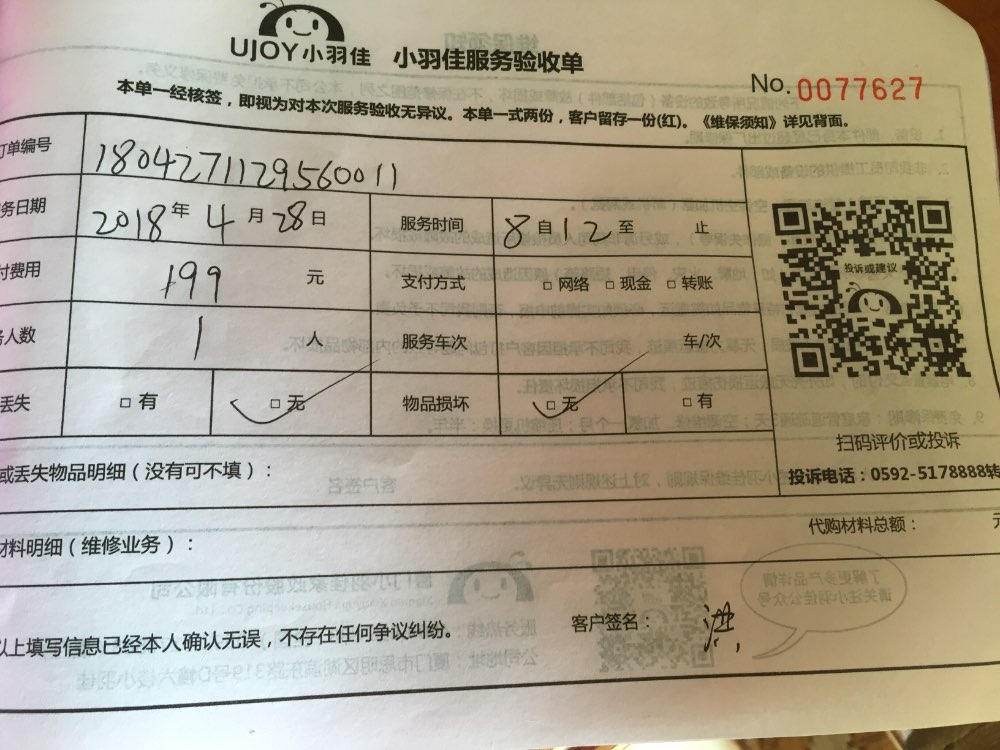 UJOY小羽佳 小羽佳服务验收单
No. 0077627
本单一经核签，即视为对本次服务验收无异议。本单一式两份，客户留存一份(红)。《维保须知》详见背面。
订单编号 18042711295600 11
务日期 2018年4月28日 服务时间 8自12至 止
付费用 199 元 支付方式 □ 网络 □ 现金 □ 转账
务人数 1 人 服务车次 车/次
丢失 □ 有 □ 无 物品损坏 □ 无 □ 有
投诉或建议
扫码评价或投诉
投诉电话：0592-5178888转
或丢失物品明细（没有可不填）：
代购材料总额： 元
材料明细（维修业务）：
以上填写信息已经本人确认无误，不存在任何争议纠纷。 客户签名： 洪